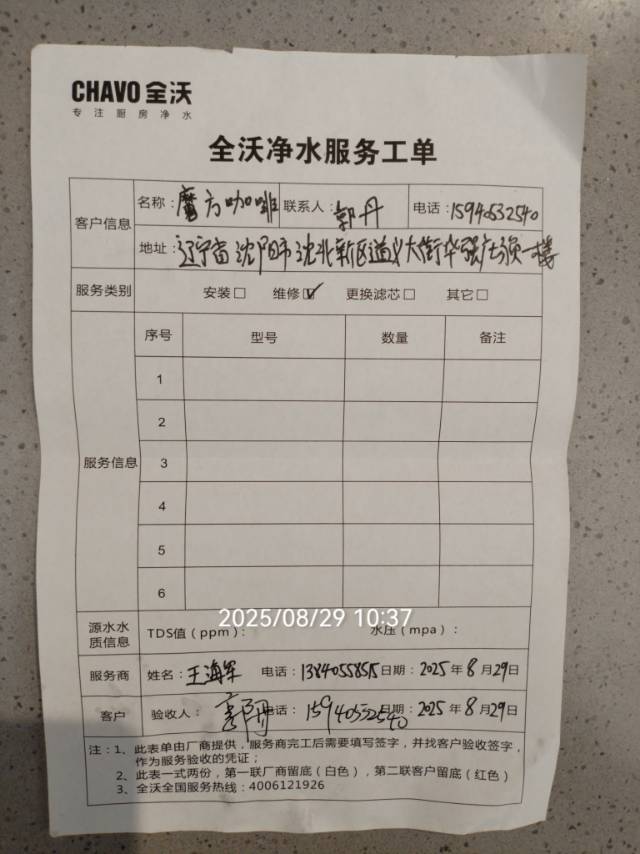 CHAVO 全沃
专注厨房净水
全沃净水服务工单
客户信息
名称：魔方咖啡 联系人：郭丹 电话：15940532540
地址：辽宁省沈阳市沈北新区道义大街华强广场一楼
服务类别 安装□ 维修☑ 更换滤芯□ 其它□
服务信息
序号 型号 数量 备注
1
2
3
4
5
6
2025/08/29 10:37
源水水质信息 TDS值（ppm）： 水压（mpa）：
服务商 姓名：王海军 电话：13840558515 日期：2025年8月29日
客户 验收人： 电话：15940532540 日期：2025年8月29日
注：1、此表单由厂商提供，服务商完工后需要填写签字，并找客户验收签字，
作为服务验收的凭证；
2、此表一式两份，第一联厂商留底（白色），第二联客户留底（红色）
3、全沃全国服务热线：4006121926